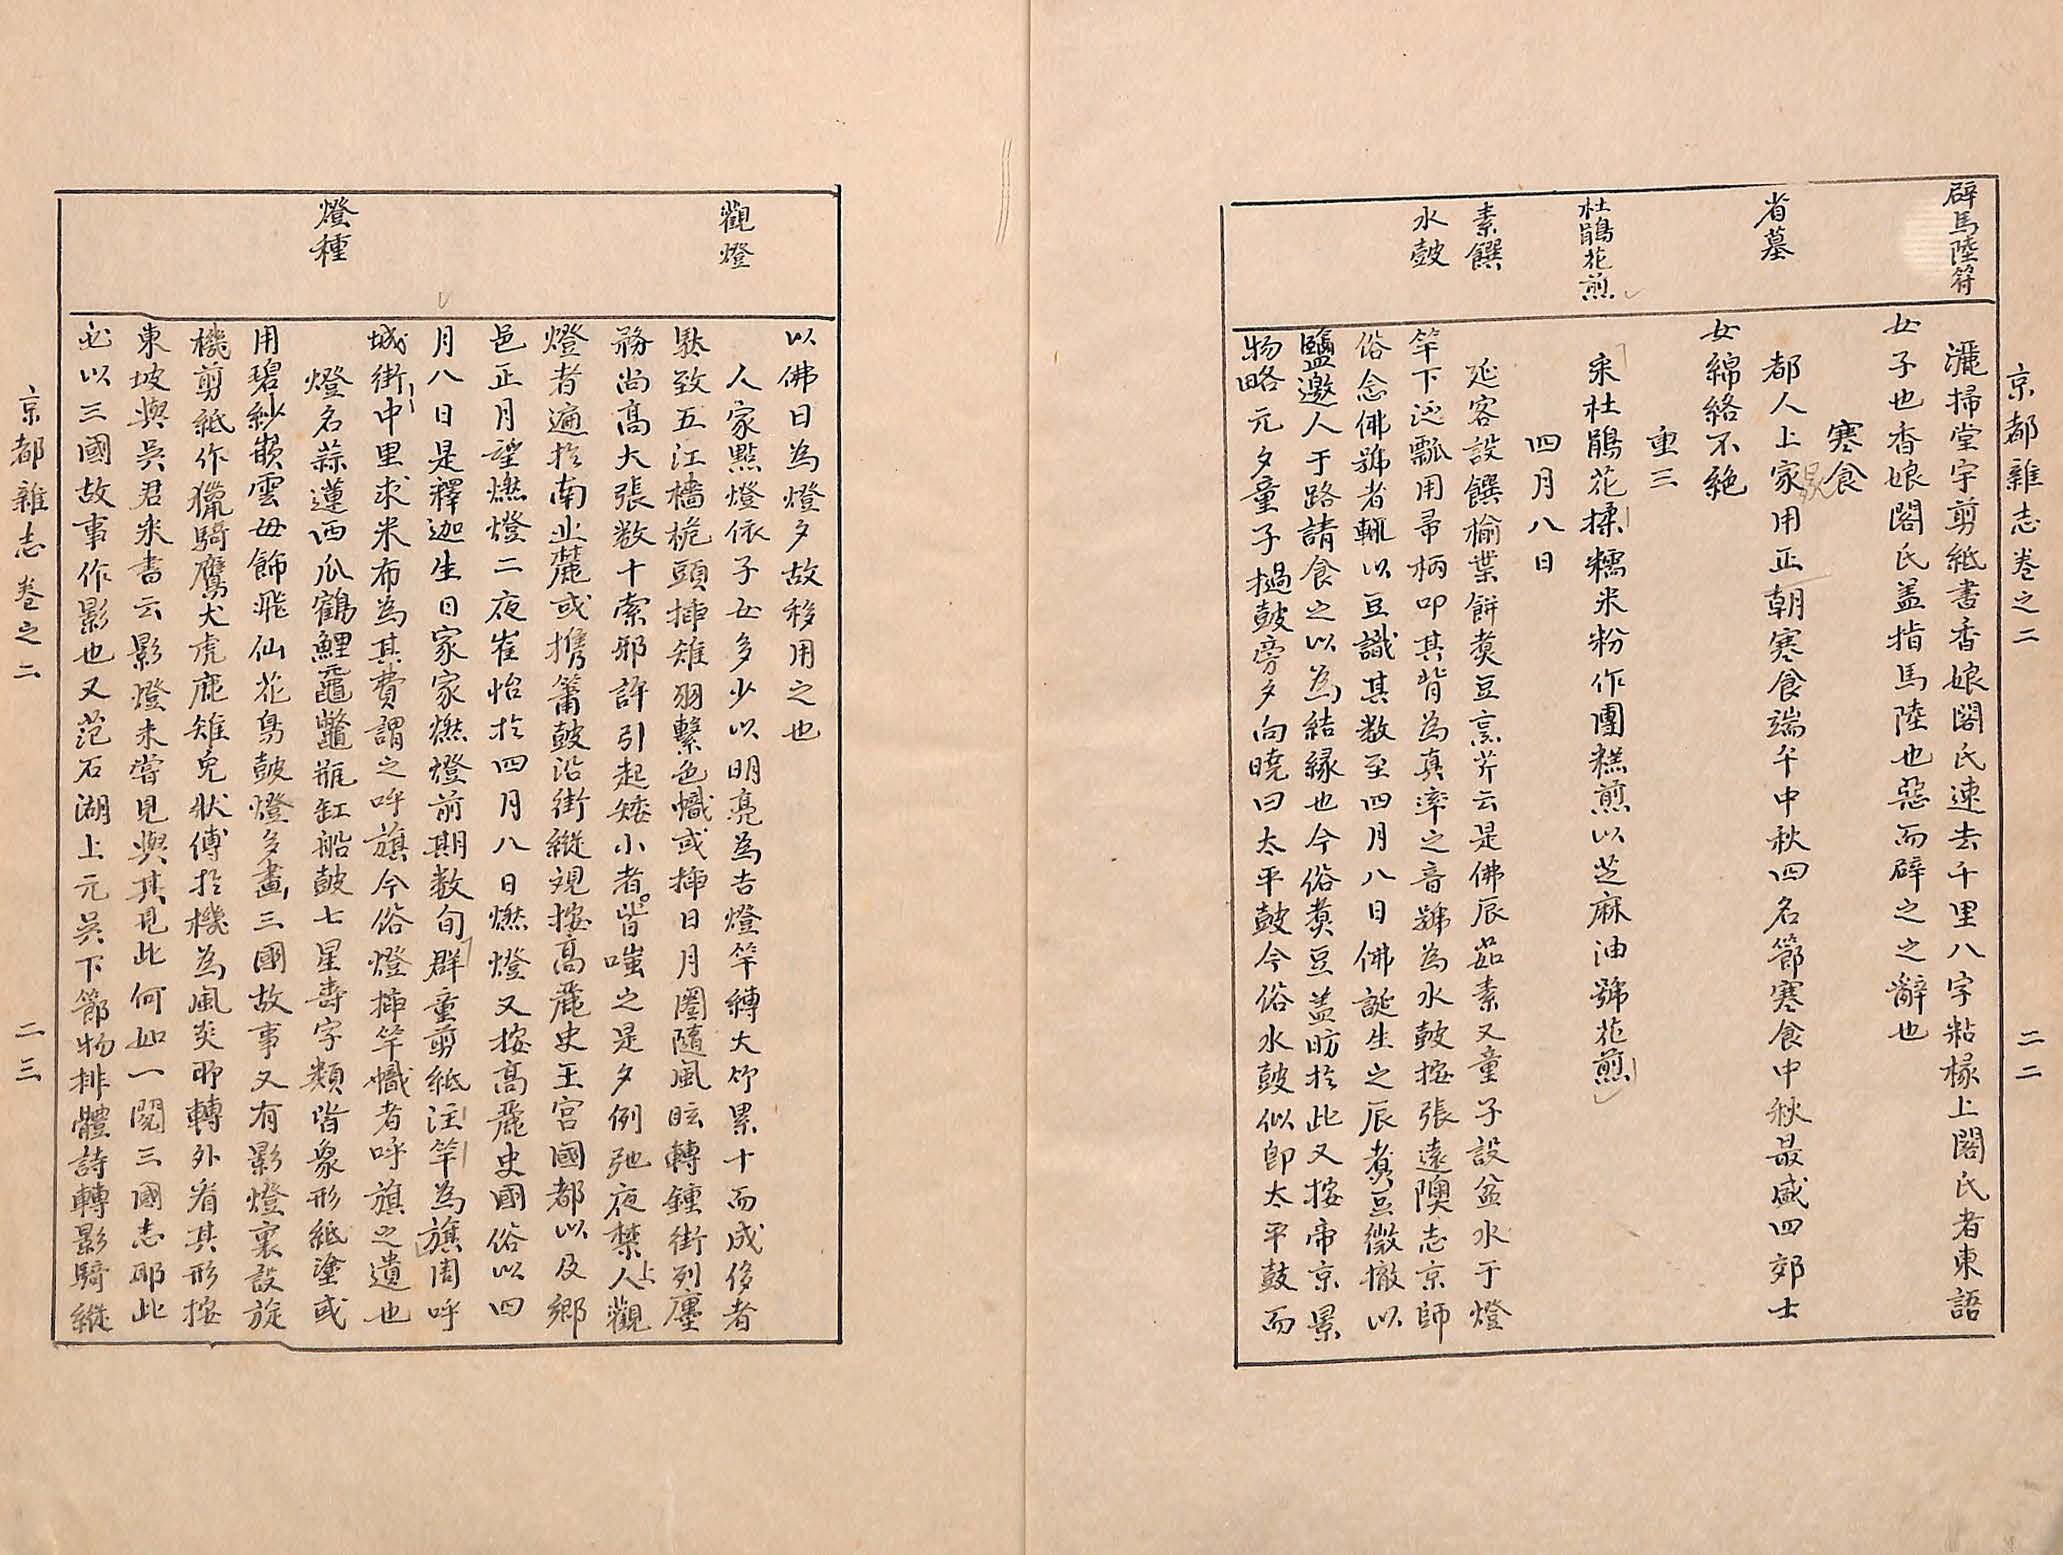 京都雜志卷之二 二二
辟馬陸符
灑掃堂宇剪紙書香娘閣氏速去千里八字粘椽上閣氏者東語
女子也香娘閣氏盖指馬陸也惡而辟之之辭也
寒食
省墓
都人上冢用正朝寒食端午中秋四名節寒食中秋最盛四郊士
女綿絡不絶
重三
杜鵑花煎
采杜鵑花揉糯米粉作團糕煎以芝麻油號花煎
四月八日
素饌
延客設饌楡葉餠煑豆烹芹云是佛辰茹素又童子設盆水于燈
水皷
竿下泛瓢用帚柄叩其背為真率之音號為水皷按張遠隩志京師
俗念佛號者輒以豆識其数至四月八日佛誕生之辰煑豆微撒以
鹽邀人于路請食之以為結緣也今俗煑豆盖昉於此又按帝京景
物略元夕童子撾鼓旁夕向曉曰太平皷今俗水皷似卽太平鼓而
以佛日為燈夕故移用之也
觀燈
人家點燈依子女多少以明亮為吉燈竿縛大竹累十而成侈者
馱致五江檣桅頭揷雉羽繫色幟或揷日月圈隨風眩轉鍾街列廛
務尚高大張数十索邪許引起矮小者皆嗤之是夕例弛夜禁人上觀
燈者遍於南北麓或携簫皷沿街縱觀按高麗史王宮國都以及鄉
邑正月望燃燈二夜崔怡於四月八日燃燈又按高麗史國俗以四
月八日是釋迦生日家家燃燈前期数旬群童剪紙注竿為旗周呼
城街中里求米布為其費謂之呼旗今俗燈揷竿幟者呼旗之遺也
燈種
燈名蒜蓮西瓜鶴鯉黿鼈瓶缸船皷七星壽字類皆象形紙塗或
用碧紗嵌雲母飾飛仙花鳥皷燈多畵三國故事又有影燈裏設旋
機剪紙作獵騎鷹犬虎鹿雉兎狀傅於機為風炎所轉外看其形按
東坡與吳君采書云影燈未嘗見與其見此何如一閱三國志耶此
必以三國故事作影也又范石湖上元吳下節物排體詩轉影騎縱
京都雜志卷之二 二三